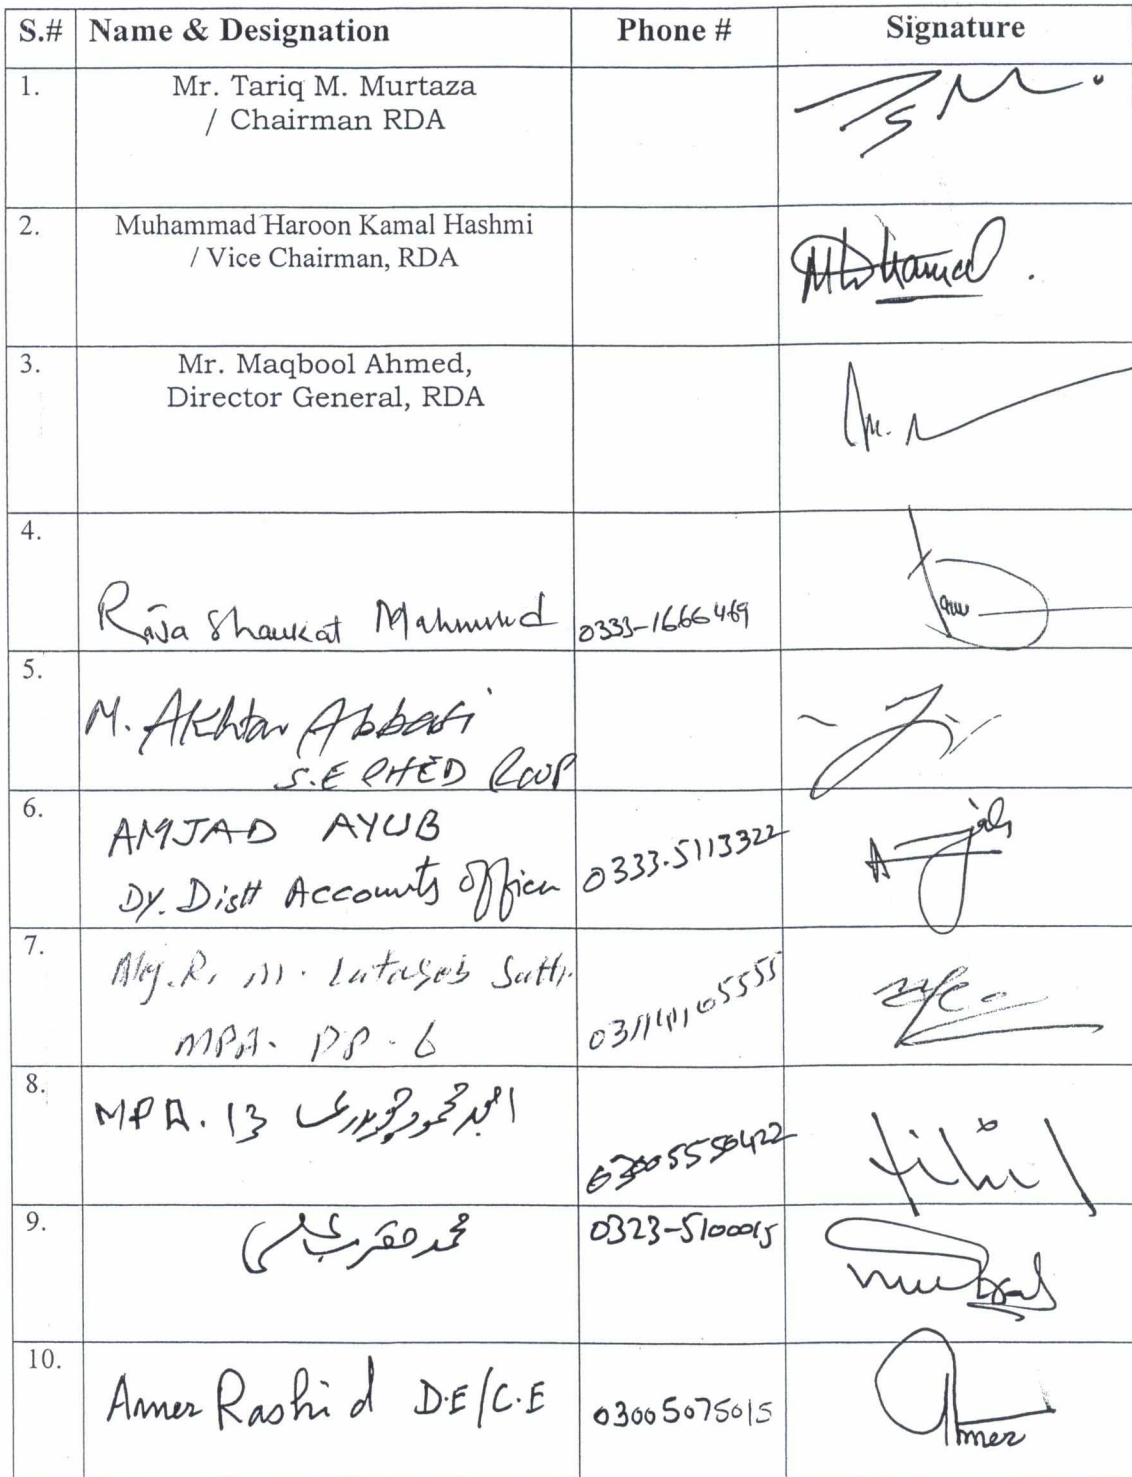 S.# Name & Designation Phone # Signature
1. Mr. Tariq M. Murtaza
/ Chairman RDA
2. Muhammad Haroon Kamal Hashmi
/ Vice Chairman, RDA
3. Mr. Maqbool Ahmed,
Director General, RDA
4.
Raja Shaukat Mahmud 0333-1666469
5.
M. Akhtar Abbasi
S.E PHED RWP
6.
AMJAD AYUB
Dy. Distt Accounts Officer 0333-5113322
7.
Maj. R. M. Latasob Satti
MPA. PP-6
8.
MPA. 13 چوہدری محمود امجد
03005550422
9. محمد مقرب علی 0323-5100015
10.
Amer Rashid D.E/C.E 03005075015
Amer